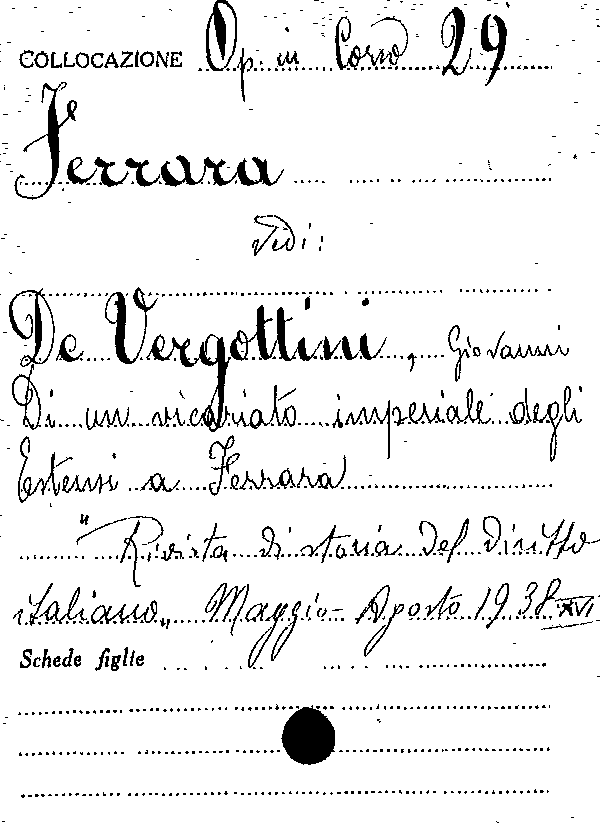 COLLOCAZIONE Op. in Corso 29
Ferrara
Vedi:
De Vergottini, Giovanni
Di un vicariato imperiale degli
Estensi a Ferrara
"Rivista di storia del diritto
italiano„ Maggio-Agosto 1938 XVI
Schede figlie